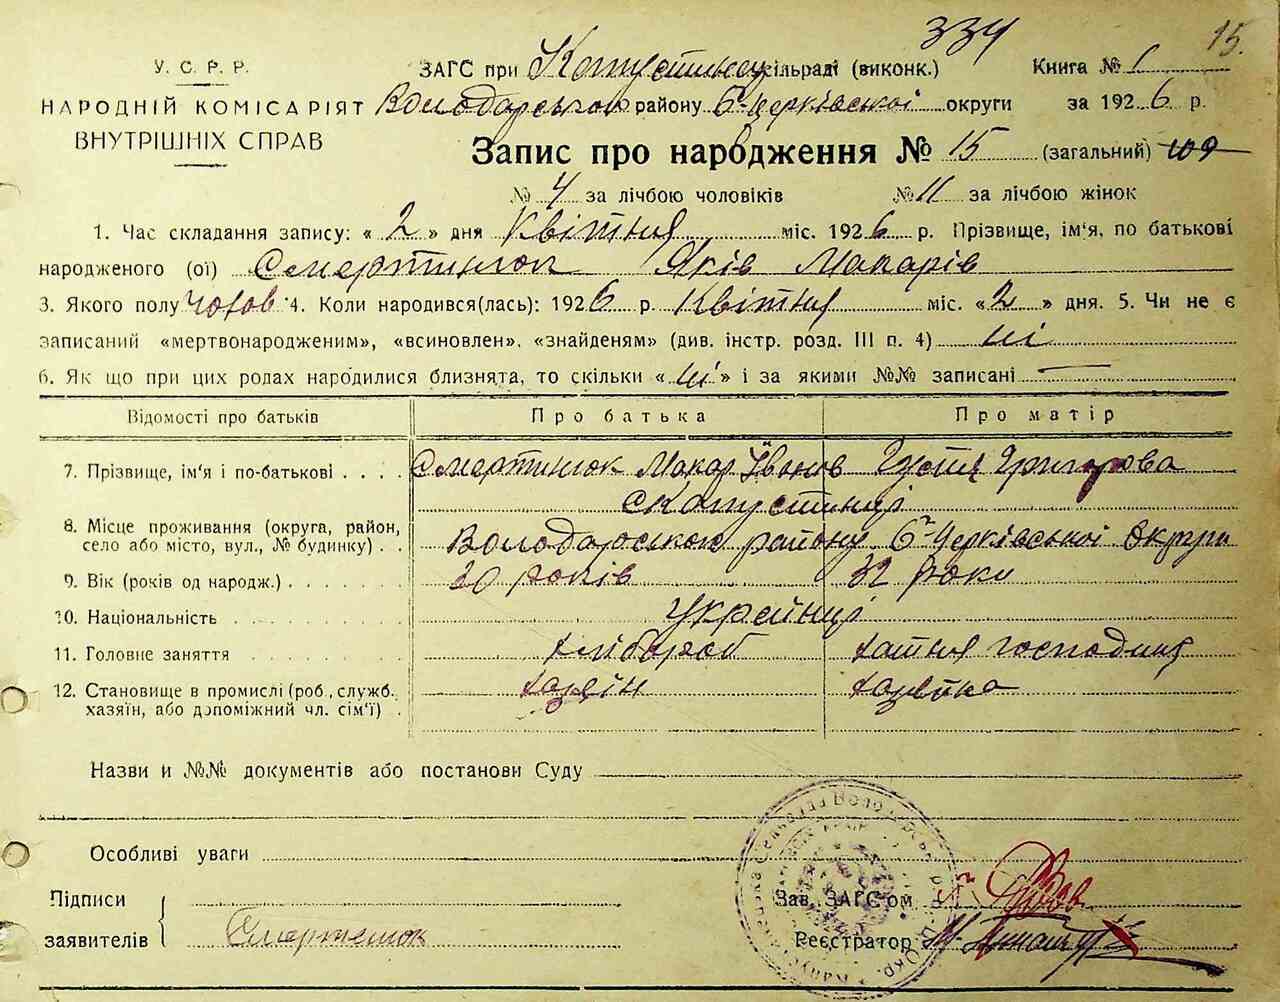 334
15.
У. С. Р. Р.
НАРОДНІЙ КОМІСАРІЯТ
ВНУТРІШНІХ СПРАВ
ЗАГС при Капустинсу сільраді (виконк.) Книга № 1
Володарського району Б-Церківської округи за 1926 р.
Запис про народження № 15 (загальний) 109
№ 4 за лічбою чоловіків № 11 за лічбою жінок
1. Час складання запису: « 2 » дня Квітня міс. 1926 р. Прізвище, ім'я, по батькові
народженого (ої) Смертинюк Яків Макарів
3. Якого полу Чолов 4. Коли народився(лась): 1926 р. Квітня міс. « 2 » дня. 5. Чи не є
записаний «мертвонародженим», «всиновлен», «знайденям» (див. інстр. розд. III п. 4) ні
6. Як що при цих родах народилися близнята, то скільки « ні » і за якими №№ записані —
Відомості про батьків Про батька Про матір
7. Прізвище, ім'я і по-батькові . . . Смертинюк Макар Іванов Григорова
с Капустинці
8. Місце проживання (округа, район,
село або місто, вул., № будинку) . . Володарського району Б-Церківської Округи
9. Вік (років од народж.) . . . . . . . років 32 роки
10. Національність . . . . . . . . . Українці
11. Головне заняття . . . . . . . . хлібороб хатня господиня
12. Становище в промислі (роб., служб.
хазяїн, або допоміжний чл. сім'ї) . хазяїн хазяйка
Назви и №№ документів або постанови Суду
Особливі уваги
Підписи
заявителів Смертенюк
Зав. ЗАГС'ом
Реєстратор